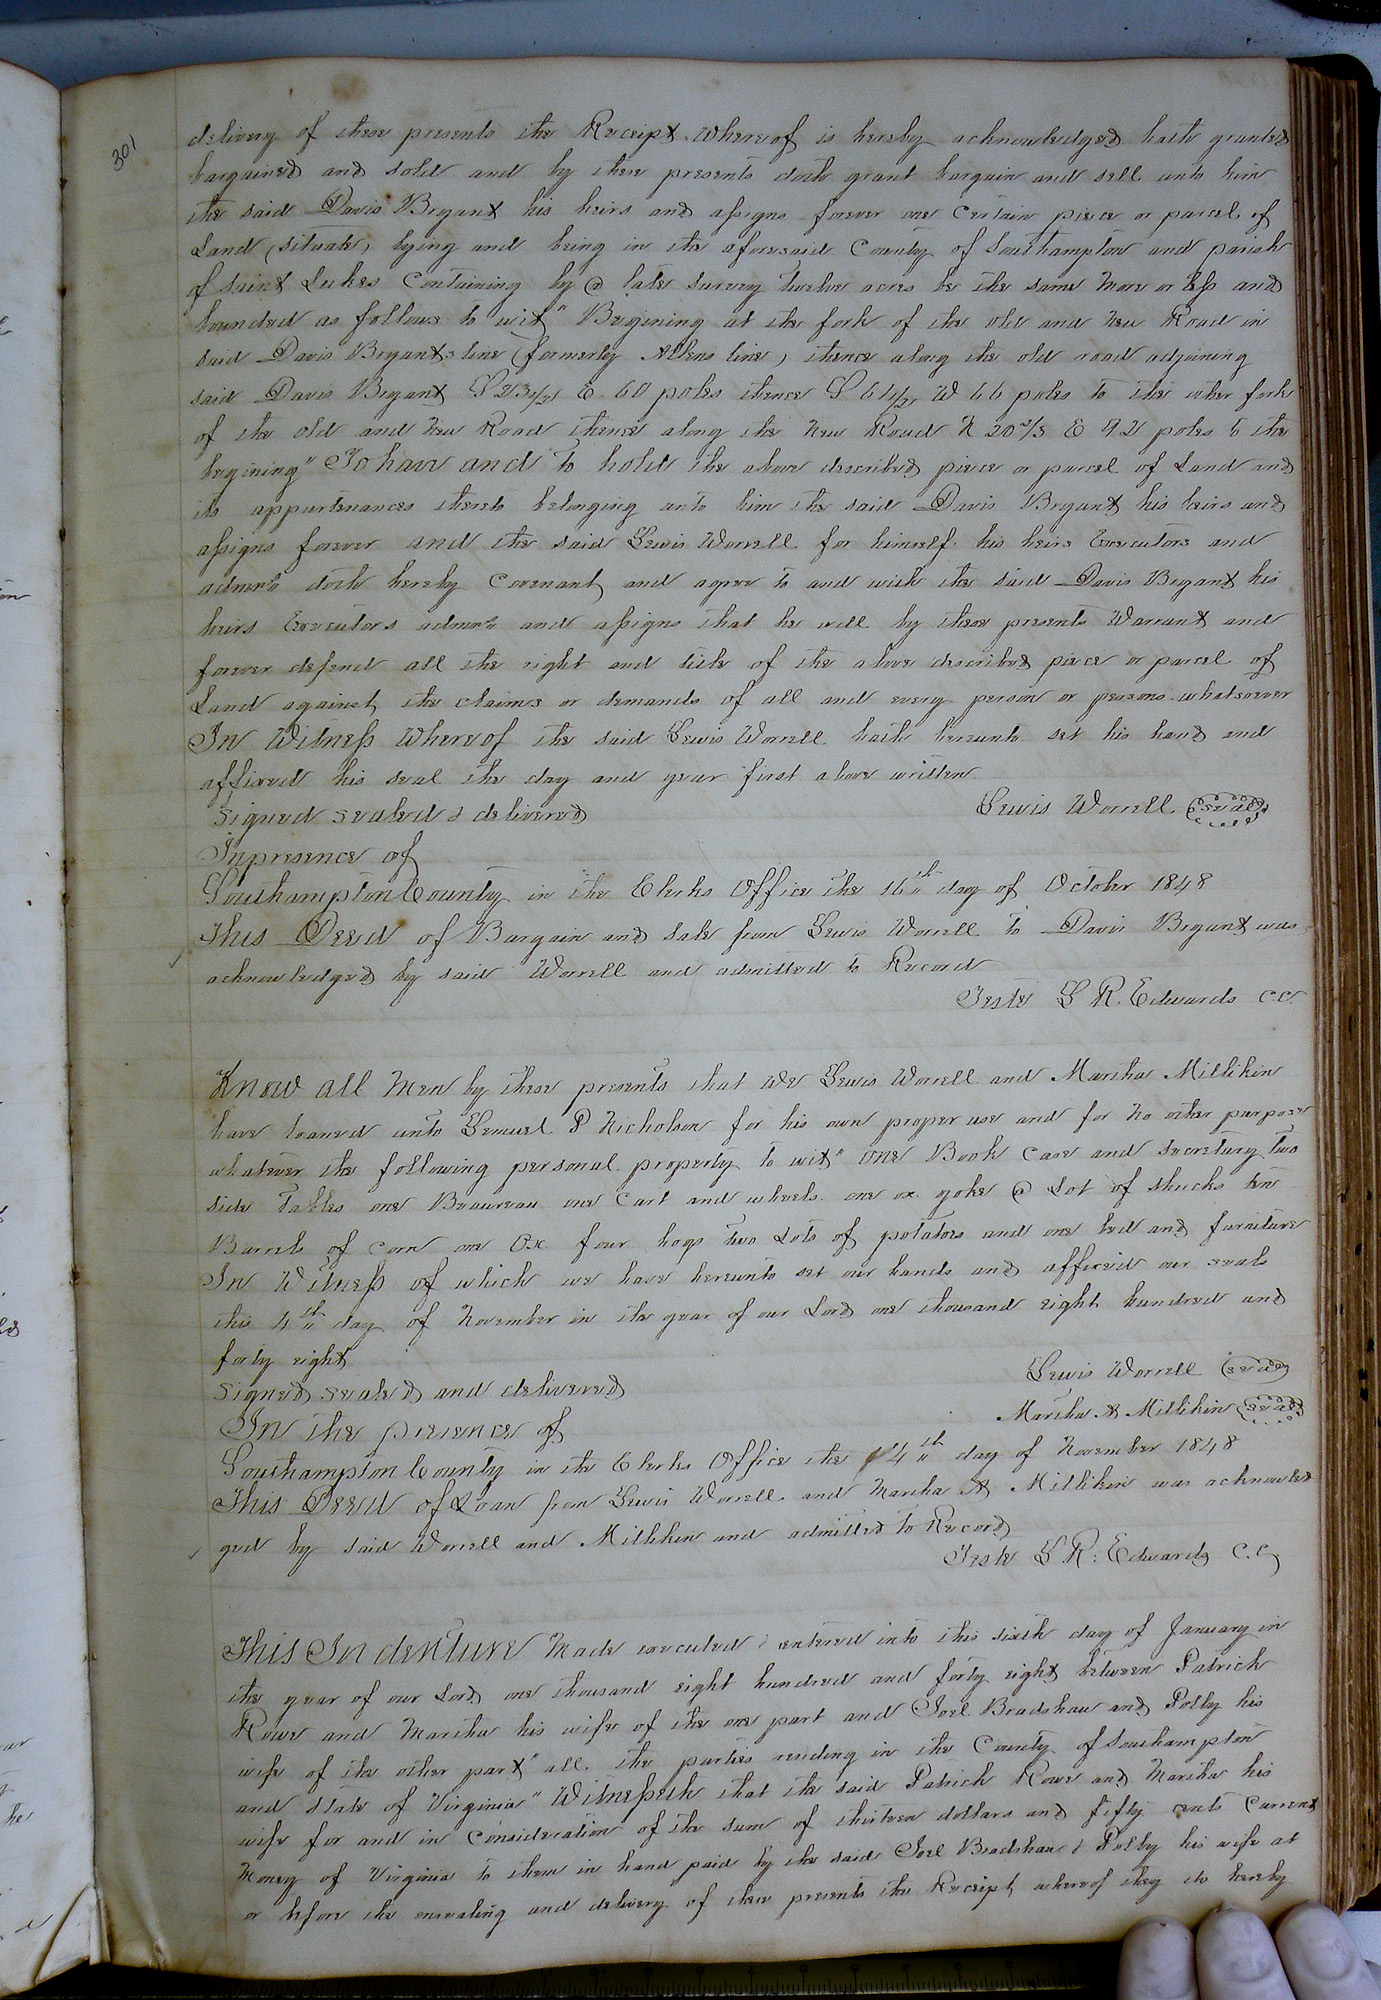 301
delivery of these presents the Receipt whereof is hereby acknowledged hath granted
bargained and sold and by these presents doth grant bargain and sell unto him
the said Davis Bryant his heirs and assigns forever one certain piece or parcel of
Land (situate) lying and being in the aforesaid County of Southampton and parish
of saint Lukes Containing by @ late survey twelve acres be the same more or less and
bounded as follows to wit" Begining at the fork of the old and New Road in
said Davis Bryants line (formerly Atkns line) thence along the old road adjoining
said Davis Bryant S 23 1/2 E. 60 poles thence S 61 1/2 W 66 poles to the other fork
of the old and New Road thence along the New Road N 20 2/3 E 92 poles to the
begining" To have and to hold the above described piece or parcel of Land and
its appurtenances thereto belonging unto him the said Davis Bryant his heirs and
assigns forever and the said Lewis Worrell for himself his heirs Executors and
admors doth hereby Covenant and agree to and with the said Davis Bryant his
heirs Executors admors and assigns that he will by these presents Warrant and
forever defend all the right and title of the above described piece or parcel of
Land against the claims or demands of all and every person or persons whatsoever
In Witness Whereof the said Lewis Worrell hath hereunto set his hand and
affixed his seal the day and year first above written
Signed sealed & delivered Lewis Worrell (seal)
In presence of
Southampton County in the Clerks Office the 16th day of October 1848
This Deed of Bargain and Sale from Lewis Worrell to Davis Bryant was
acknowledged by said Worrell and admitted to Record
Teste L R. Edwards C.C.
Know all Men by these presents that We Lewis Worrell and Martha Millikin
have loaned unto Lemuel P Nicholson for his own proper use and for no other purpose
whatever the following personal property to wit" One Book Case and secretary two
side Tables one Beaureau one Cart and wheels one ox yoke @ Lot of shucks ten
Barrels of corn one Ox four hogs two Lots of potatoes and one bed and furniture
In Witness of which we have hereunto set our hands and affixed our seals
this 4th day of November in the year of our Lord one thousand eight hundred and
forty eight
Lewis Worrell (seal)
Signed sealed and delivered
Martha A Millikin (seal)
In the presence of
Southampton County in the Clerks Office the 4th day of November 1848
This Deed of Loan from Lewis Worrell and Martha A Millikin was acknowled
ged by said Worrell and Millikin and admitted to Record
Teste L R: Edwards C.C.
This Indenture Made executed & entered into this sixth day of January in
the year of our Lord one thousand eight hundred and forty eight between Patrick
Rowe and Martha his wife of the one part and Joel Bradshaw and Polly his
wife of the other part" all the parties residing in the County of Southampton
and State of Virginia" Witnesseth that the said Patrick Rowe and Martha his
wife for and in Consideration of the sum of thirteen dollars and fifty cents Current
Money of Virginia to them in hand paid by the said Joel Bradshaw & Polly his wife at
or before the ensealing and delivery of these presents the Receipt whereof they do hereby